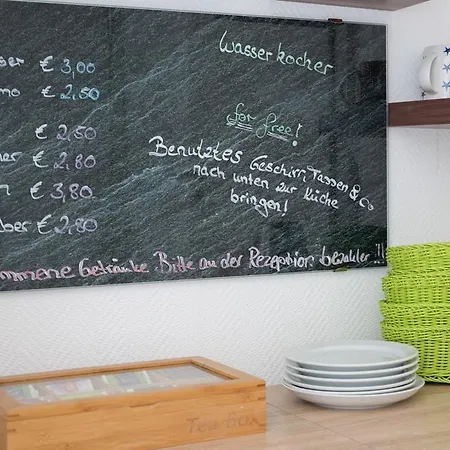 Wasserkocher
€ 3,00
€ 2,50
for free!
€ 2,50
€ 2,80
€ 3,80
€ 2,80
Benutztes Geschirr, Tassen & Co
nach unten zur Küche
bringen!
Getränke Bitte an der Rezeption bezahlen !!!
Tea Box